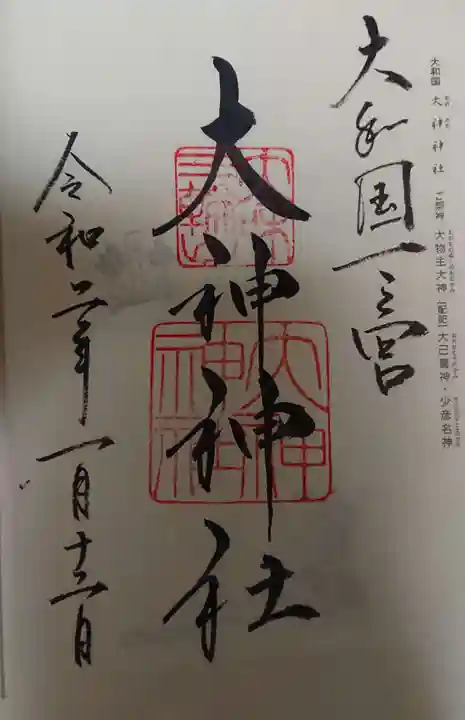 大和国 大神神社 [ご祭神] 大物主大神 [配祀] 大己貴神・少彦名神
大和国一之宮
大神神社
大神神社
令和二年一月十 日